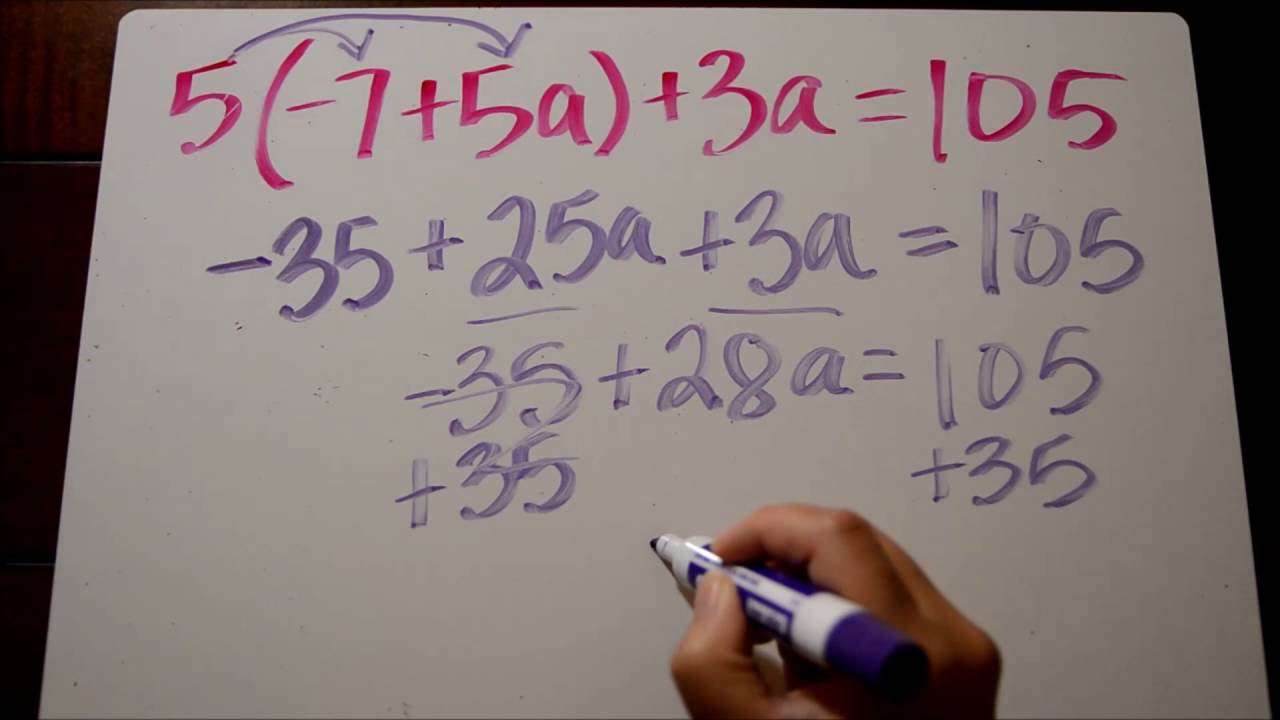 5(-7+5a)+3a=105
-35+25a+3a=105
-35+28a=105
+35 +35